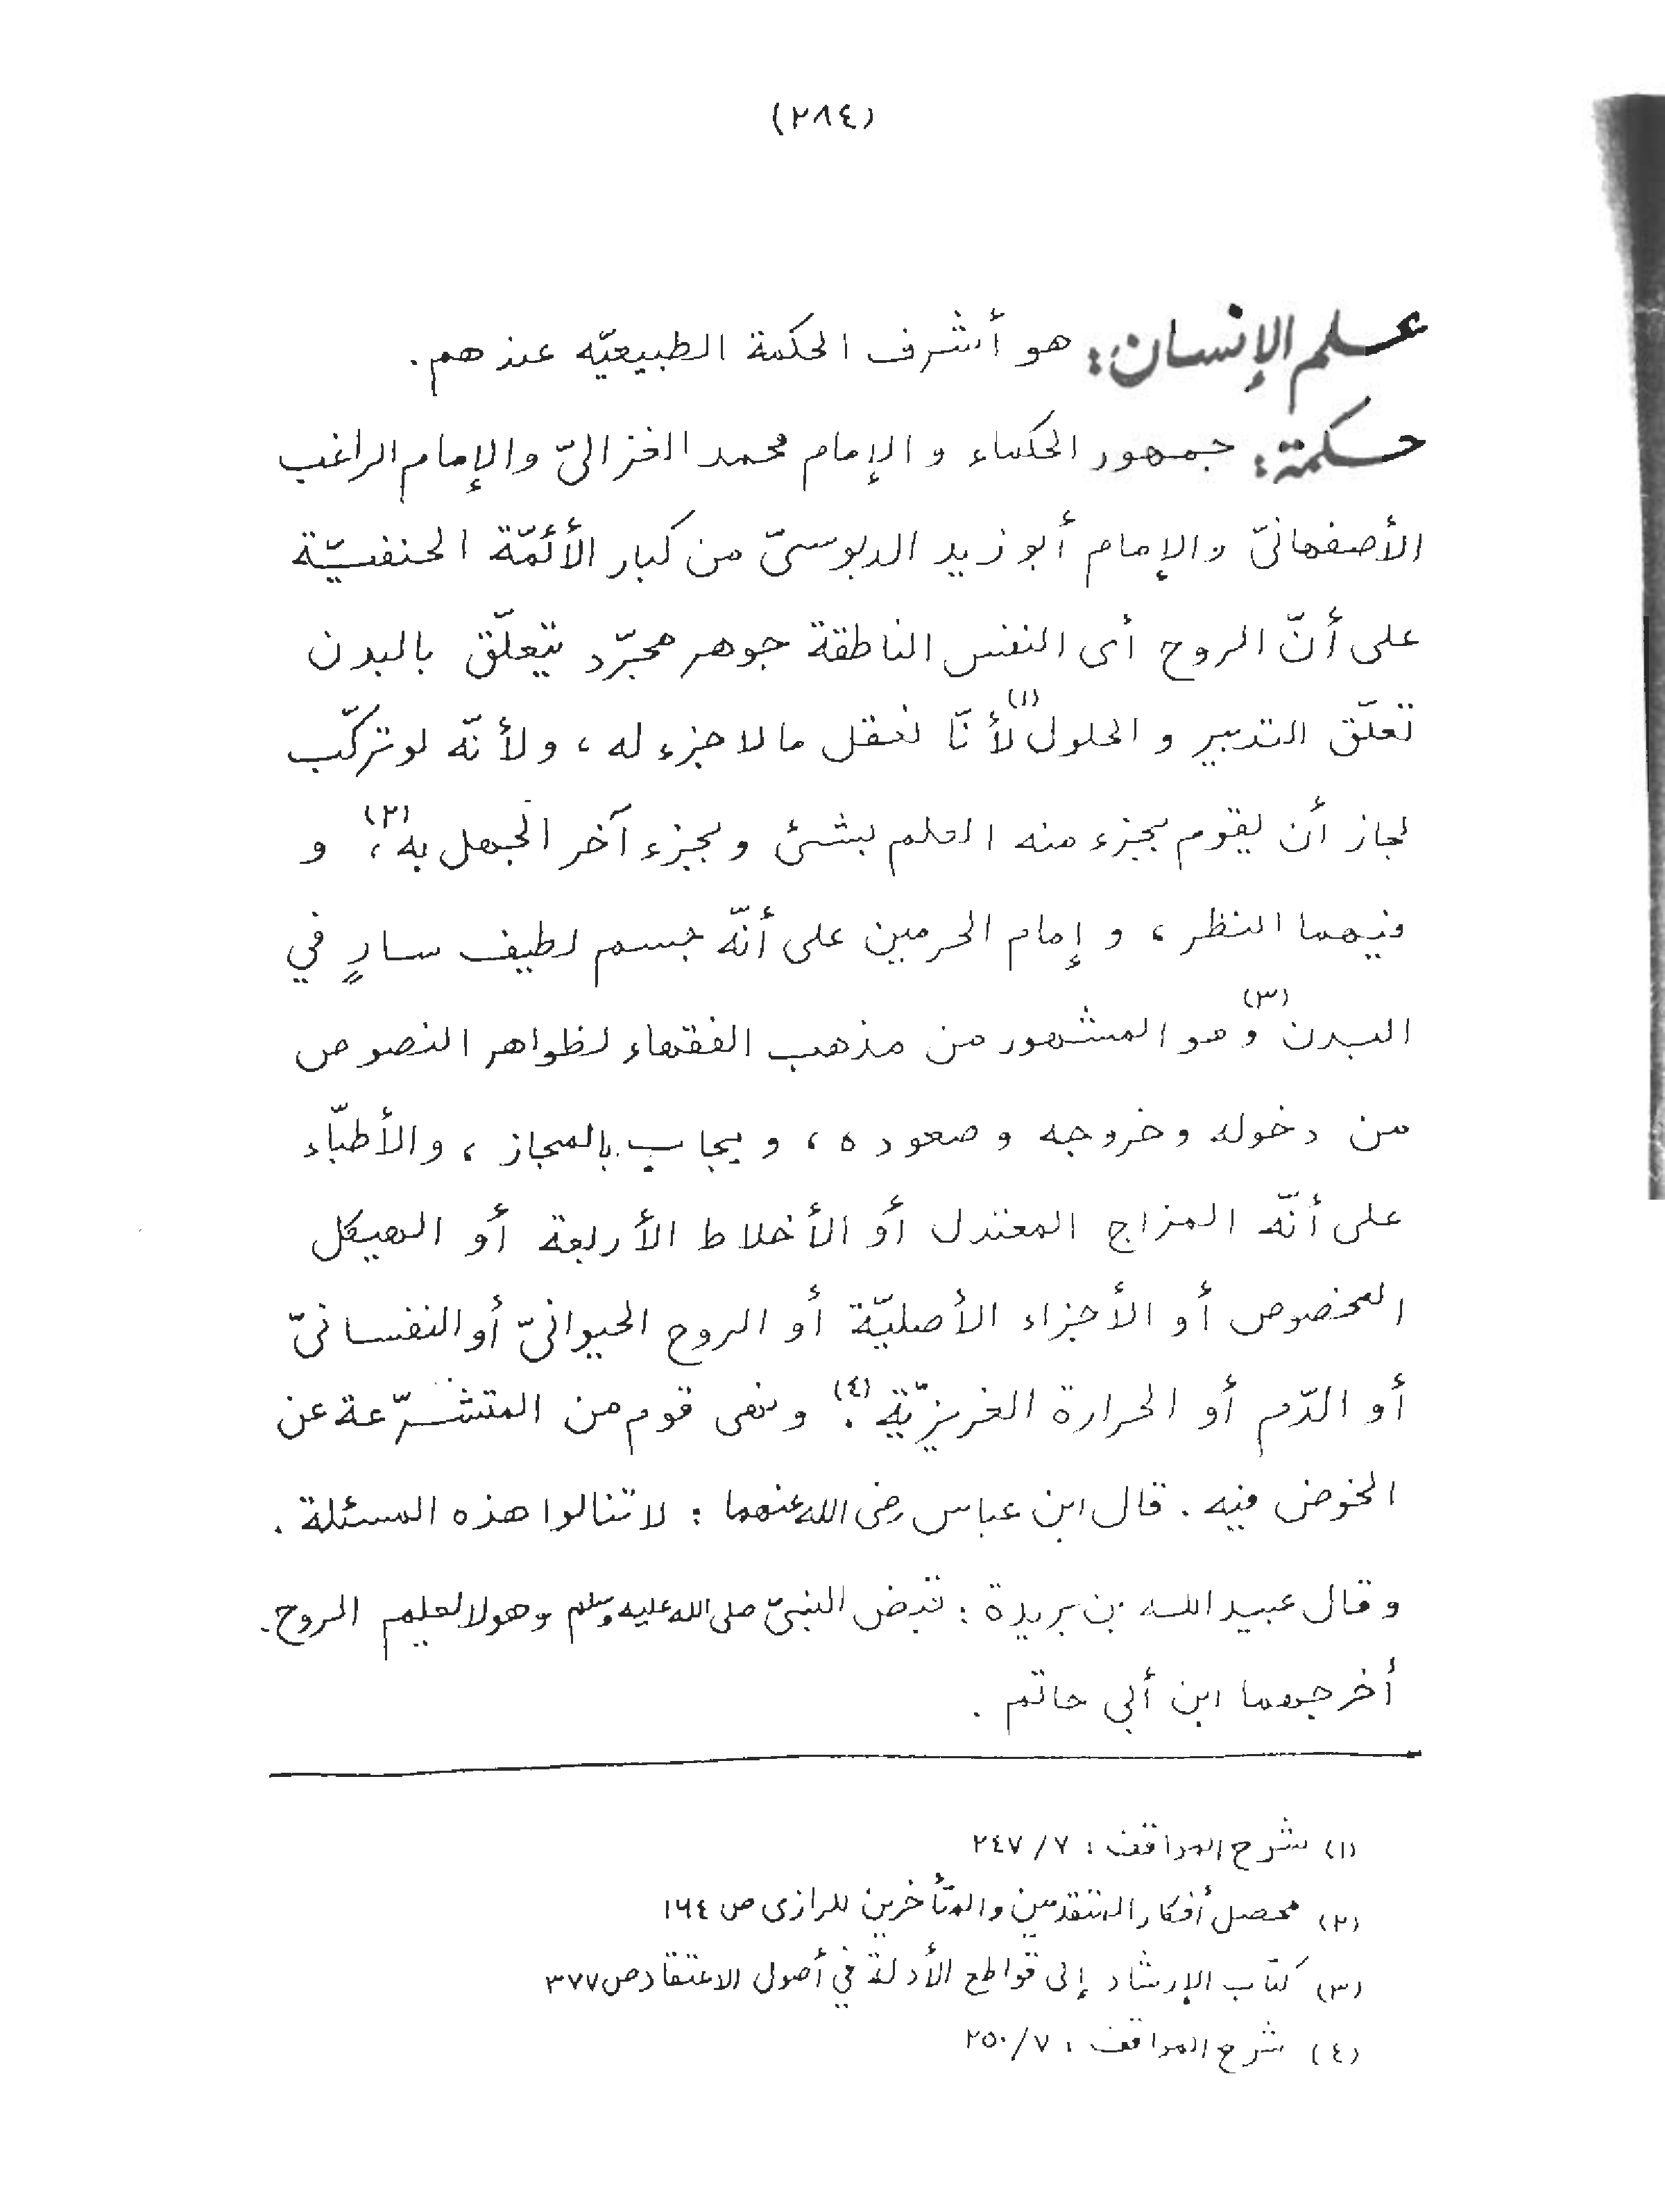 (٢٨٤)
علم الإنسان: هو أشرف الحكمة الطبيعيّه عندهم.
حكمة: جمهور الحكماء و الإمام محمد الغزاليّ والإمام الراغب
الأصفهانيّ والإمام أبو زيد الدبوسىّ من كبار الأئمّة الحنفيّة
على أنّ الروح أى النفس الناطقة جوهر مجرّد يتعلّق بالبدن
تعلّق التدبير و الحلول(١) لأنّا نعقل ما لا جزء له، ولأنّه لو تركّب
لجاز أن يقوم بجزء منه العلم بشئ وبجزء آخر الجهل به(٢)، و
فيهما النظر، و إمام الحرمين على أنّه جسم لطيف سارٍ في
البدن(٣) و هو المشهور من مذهب الفقهاء لظواهر النصوص
من دخوله وخروجه وصعوده، و يجاب بالمجاز، والأطبّاء
على أنّه المزاج المعتدل أو الأخلاط الأربعة أو الهيكل
المخصوص أو الأجزاء الأصليّة أو الروح الحيوانيّ أو النفسانيّ
أو الدّم أو الحرارة الغريزيّة(٤). ونهى قوم من المتشرّعة عن
الخوض فيه. قال ابن عباس رضى الله عنهما: لا تنالوا هذه المسئلة.
وقال عبيد الله بن بريدة: قبض النبىّ صلى الله عليه وسلم وهو لا يعلم الروح.
أخرجهما ابن أبي حاتم.
(١) شرح المواقف: ٧/ ٢٤٧
(٢) محصل أفكار المتقدمين والمتأخرين للرازى ص ١٦٤
(٣) كتاب الإرشاد إلى قواطع الأدلة في أصول الاعتقاد ص ٣٧٧
(٤) شرح المواقف: ٧/ ٢٥٠